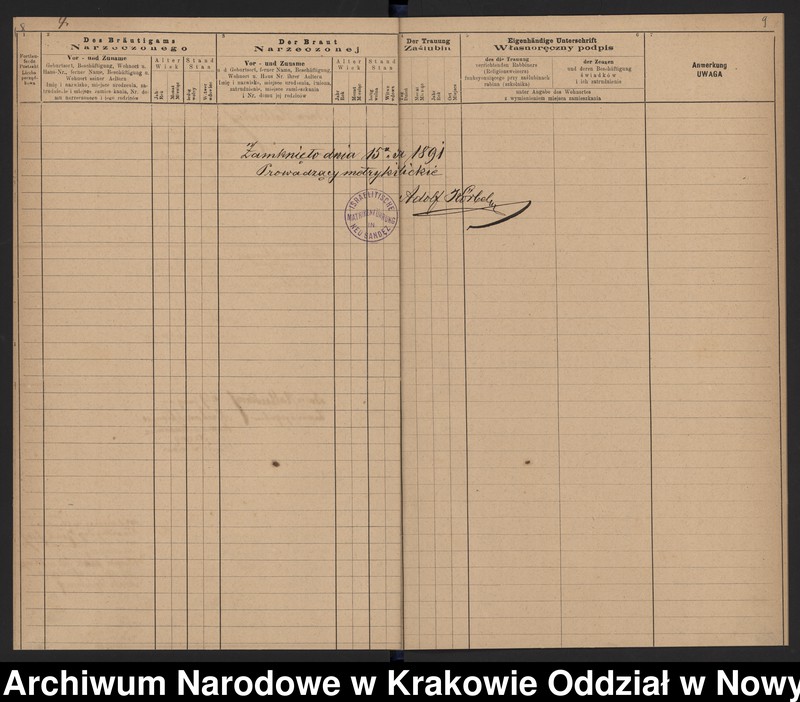 4.
9
Des Bräutigams
Narzeczonego
Vor - und Zuname
Geburtsort, Beschäftigung, Wohnort u.
Haus-Nr., ferner Name, Beschäftigung u.
Wohnort seiner Aeltern
Imię i nazwisko, miejsce urodzenia, za-
trudnienie i miejsce zamieszkania, Nr. do-
mu narzeczonego i jego rodziców
Alter
Wiek
Stand
Stan
Der Braut
Narzeczonej
Vor - und Zuname
Geburtsort, ferner Name, Beschäftigung,
Wohnort u. Haus Nr. ihrer Aeltern
Imię i nazwisko, miejsce urodzenia, imiona,
zatrudnienie, miejsce zamieszkania
i Nr. domu jej rodziców
Alter
Wiek
Stand
Stan
Der Trauung
Zaślubin
Eigenhändige Unterschrift
Własnoręczny podpis
des die Trauung
verrichtenden Rabbiners
(Religionsweisers)
funkcyonującego przy zaślubinach
rabina (szkolnika)
der Zeugen
und deren Beschäftigung
świadków
i ich zatrudnienie
unter Angabe des Wohnortes
z wymienieniem miejsca zamieszkania
Anmerkung
UWAGA
Zamknięto dnia 15 1891
Prowadzący metryki
Adolf Körbel
ISRAELITISCHE
MATRIKENFÜHRUNG
IN
NEU SANDEZ
Archiwum Narodowe w Krakowie Oddział w Nowy